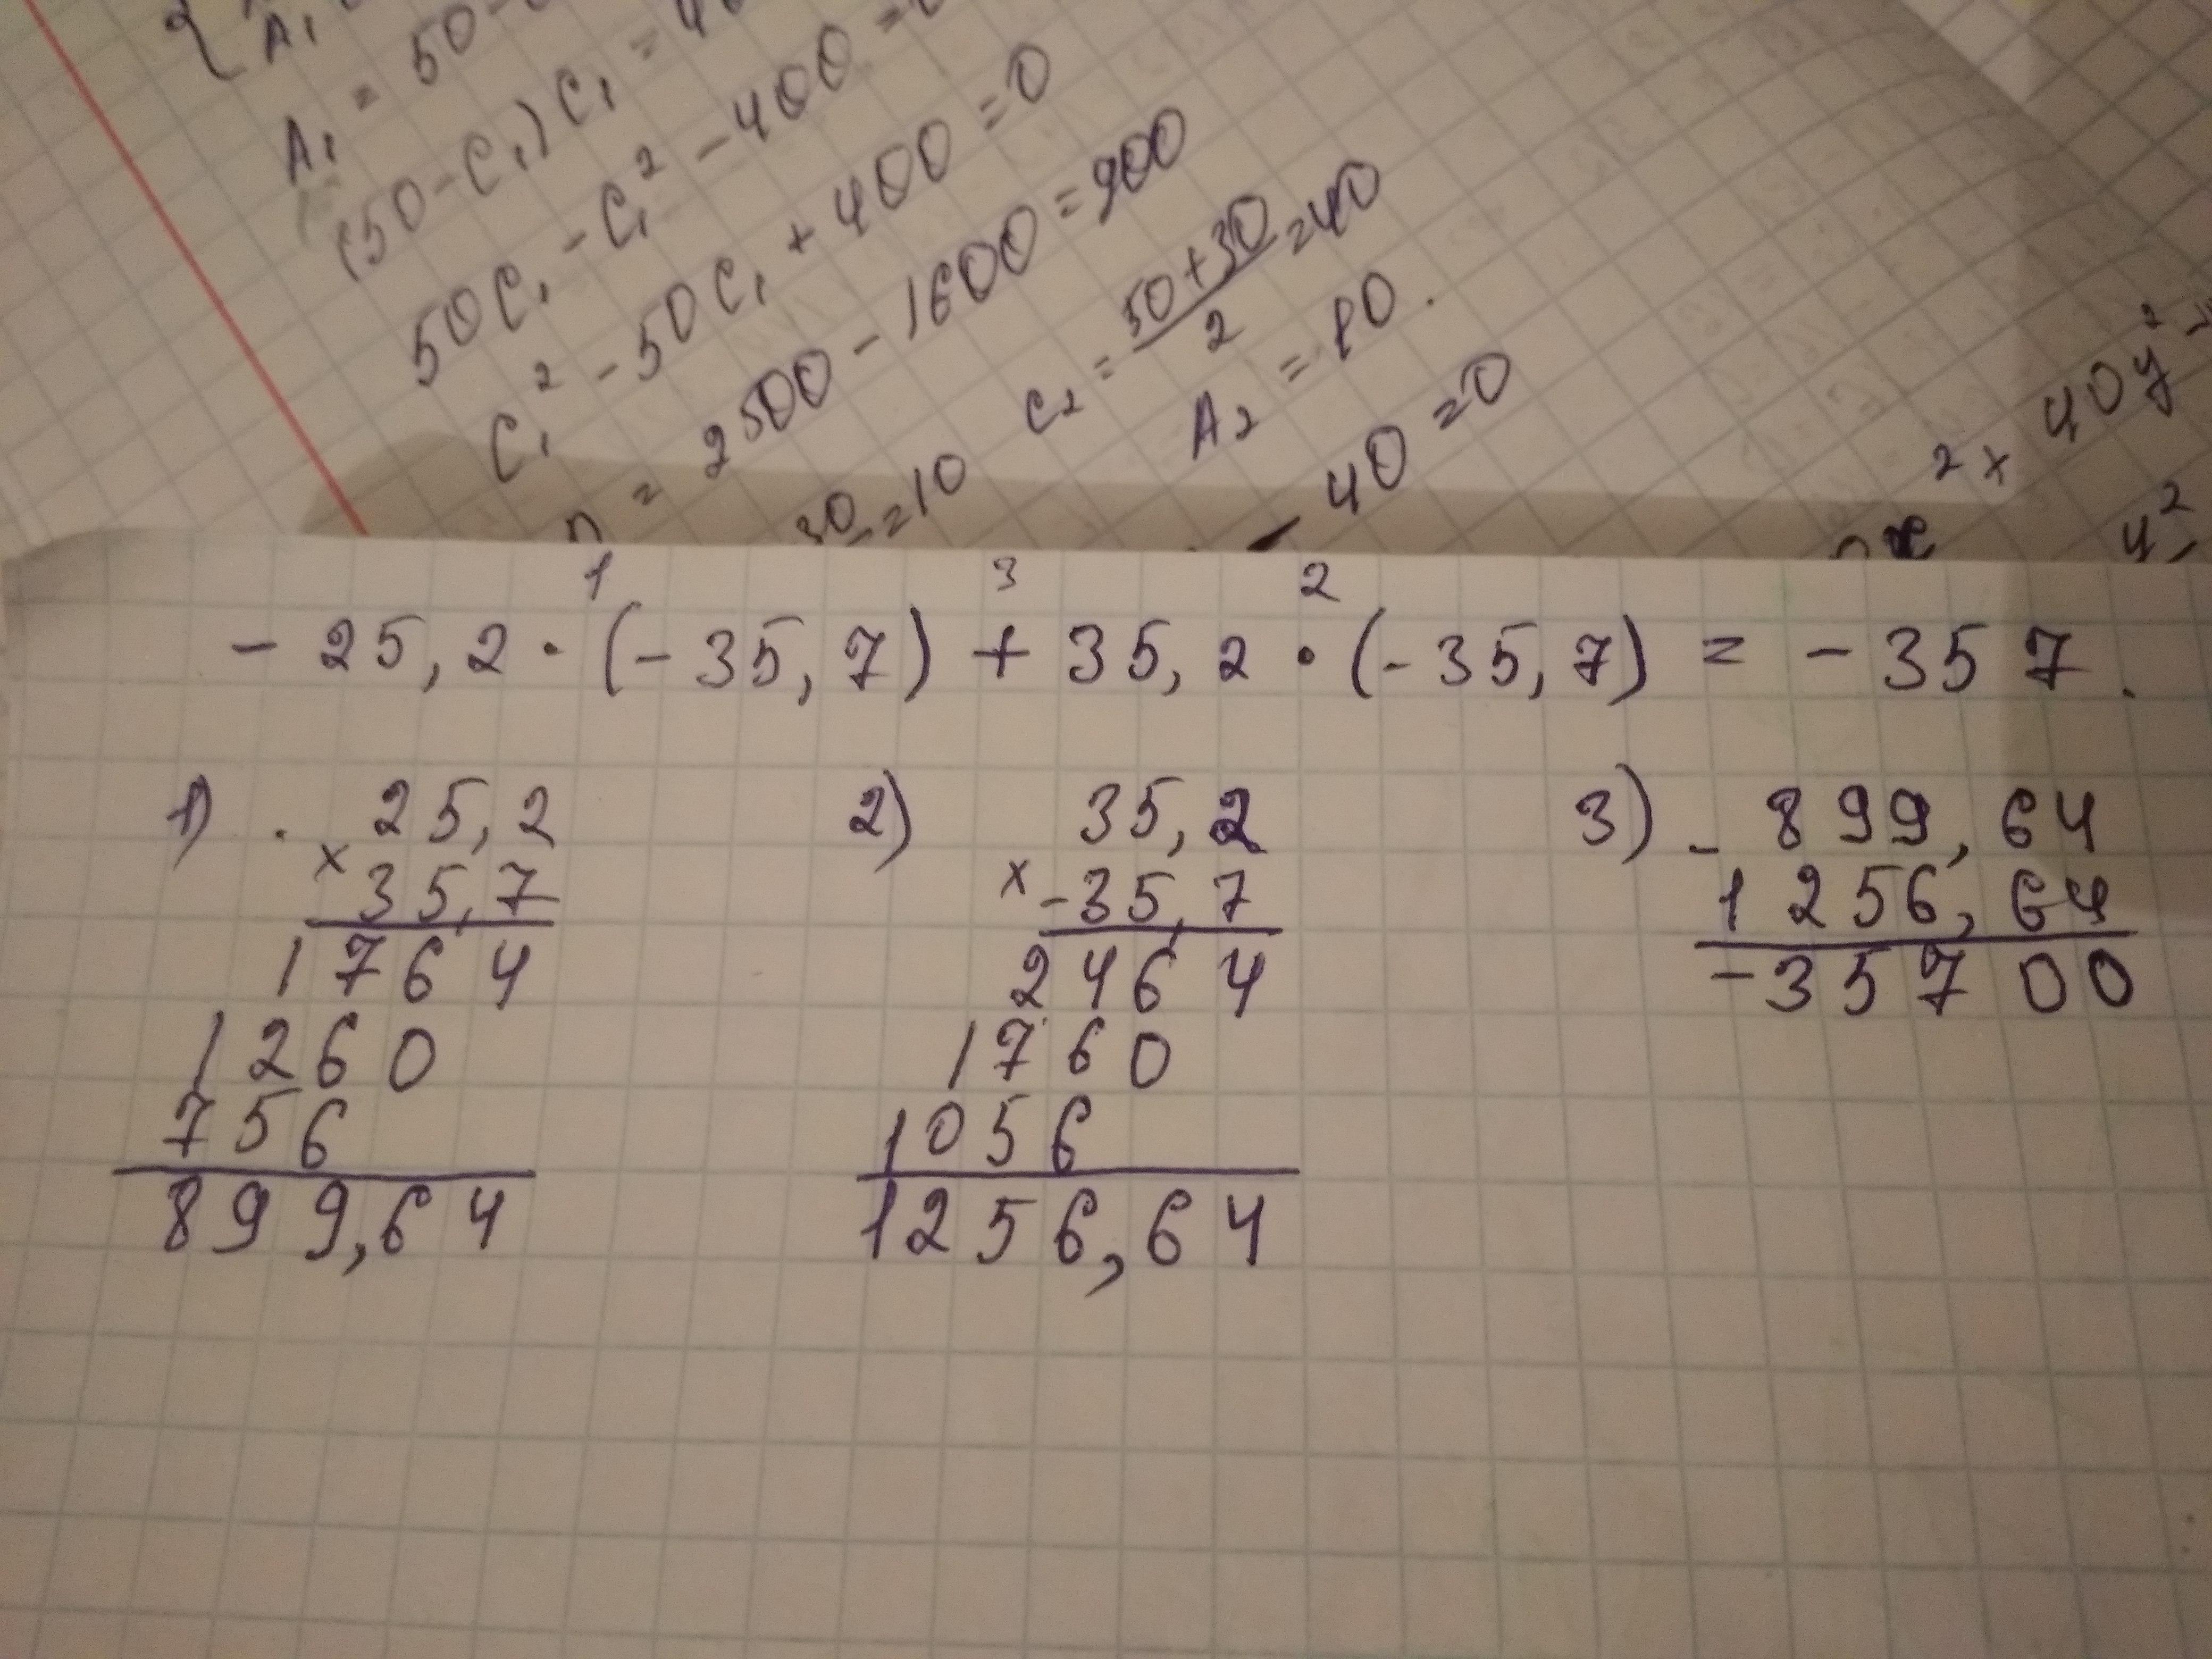 A₁
A₁ = 50 -
(50 - C₁) C₁ = 4
50C₁ - C₁² - 400 =
C₁² - 50C₁ + 400 = 0
= 2500 - 1600 = 900
30 = 10 C₂ = (50+30)/2 = 40
A₂ = 10.
- 40 = 0
2x 40y²
y²
1 3 2
- 25,2 · (-35,7) + 35,2 · (-35,7) = - 357.
1) × 25,2
35,7
1764
1260
756
899,64
2) 35,2
× -35,7
2464
1760
1056
1256,64
3) - 899,64
1256,64
-35700